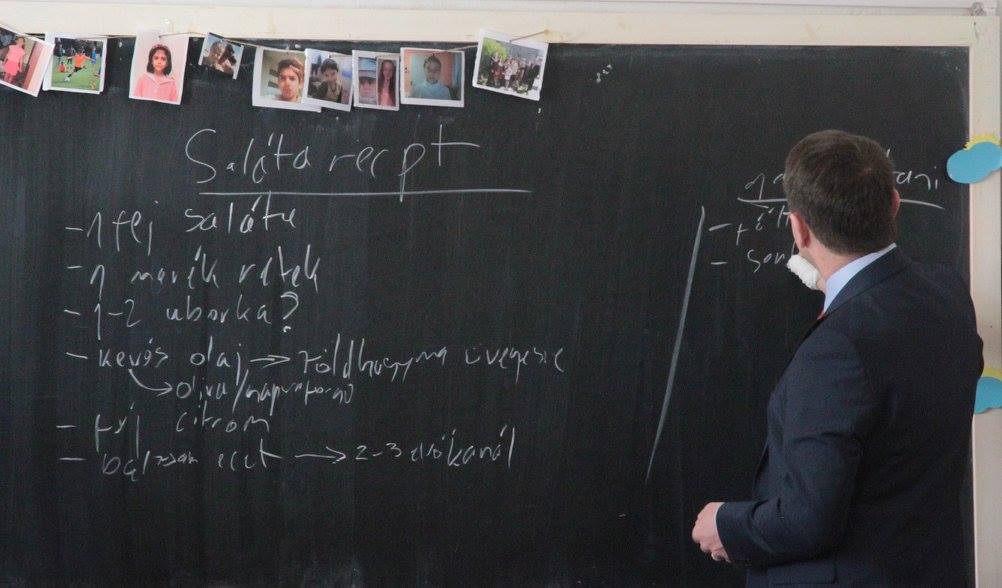 Saláta recpt
- 1 fej saláta
- 1 marék retek
- 1-2 uborka?
- kevés olaj → zöldhagyma üvegesre
→ oliva/napraforgó
- fej citrom
- balzsam ecet → 2-3 evőkanál
-
- son